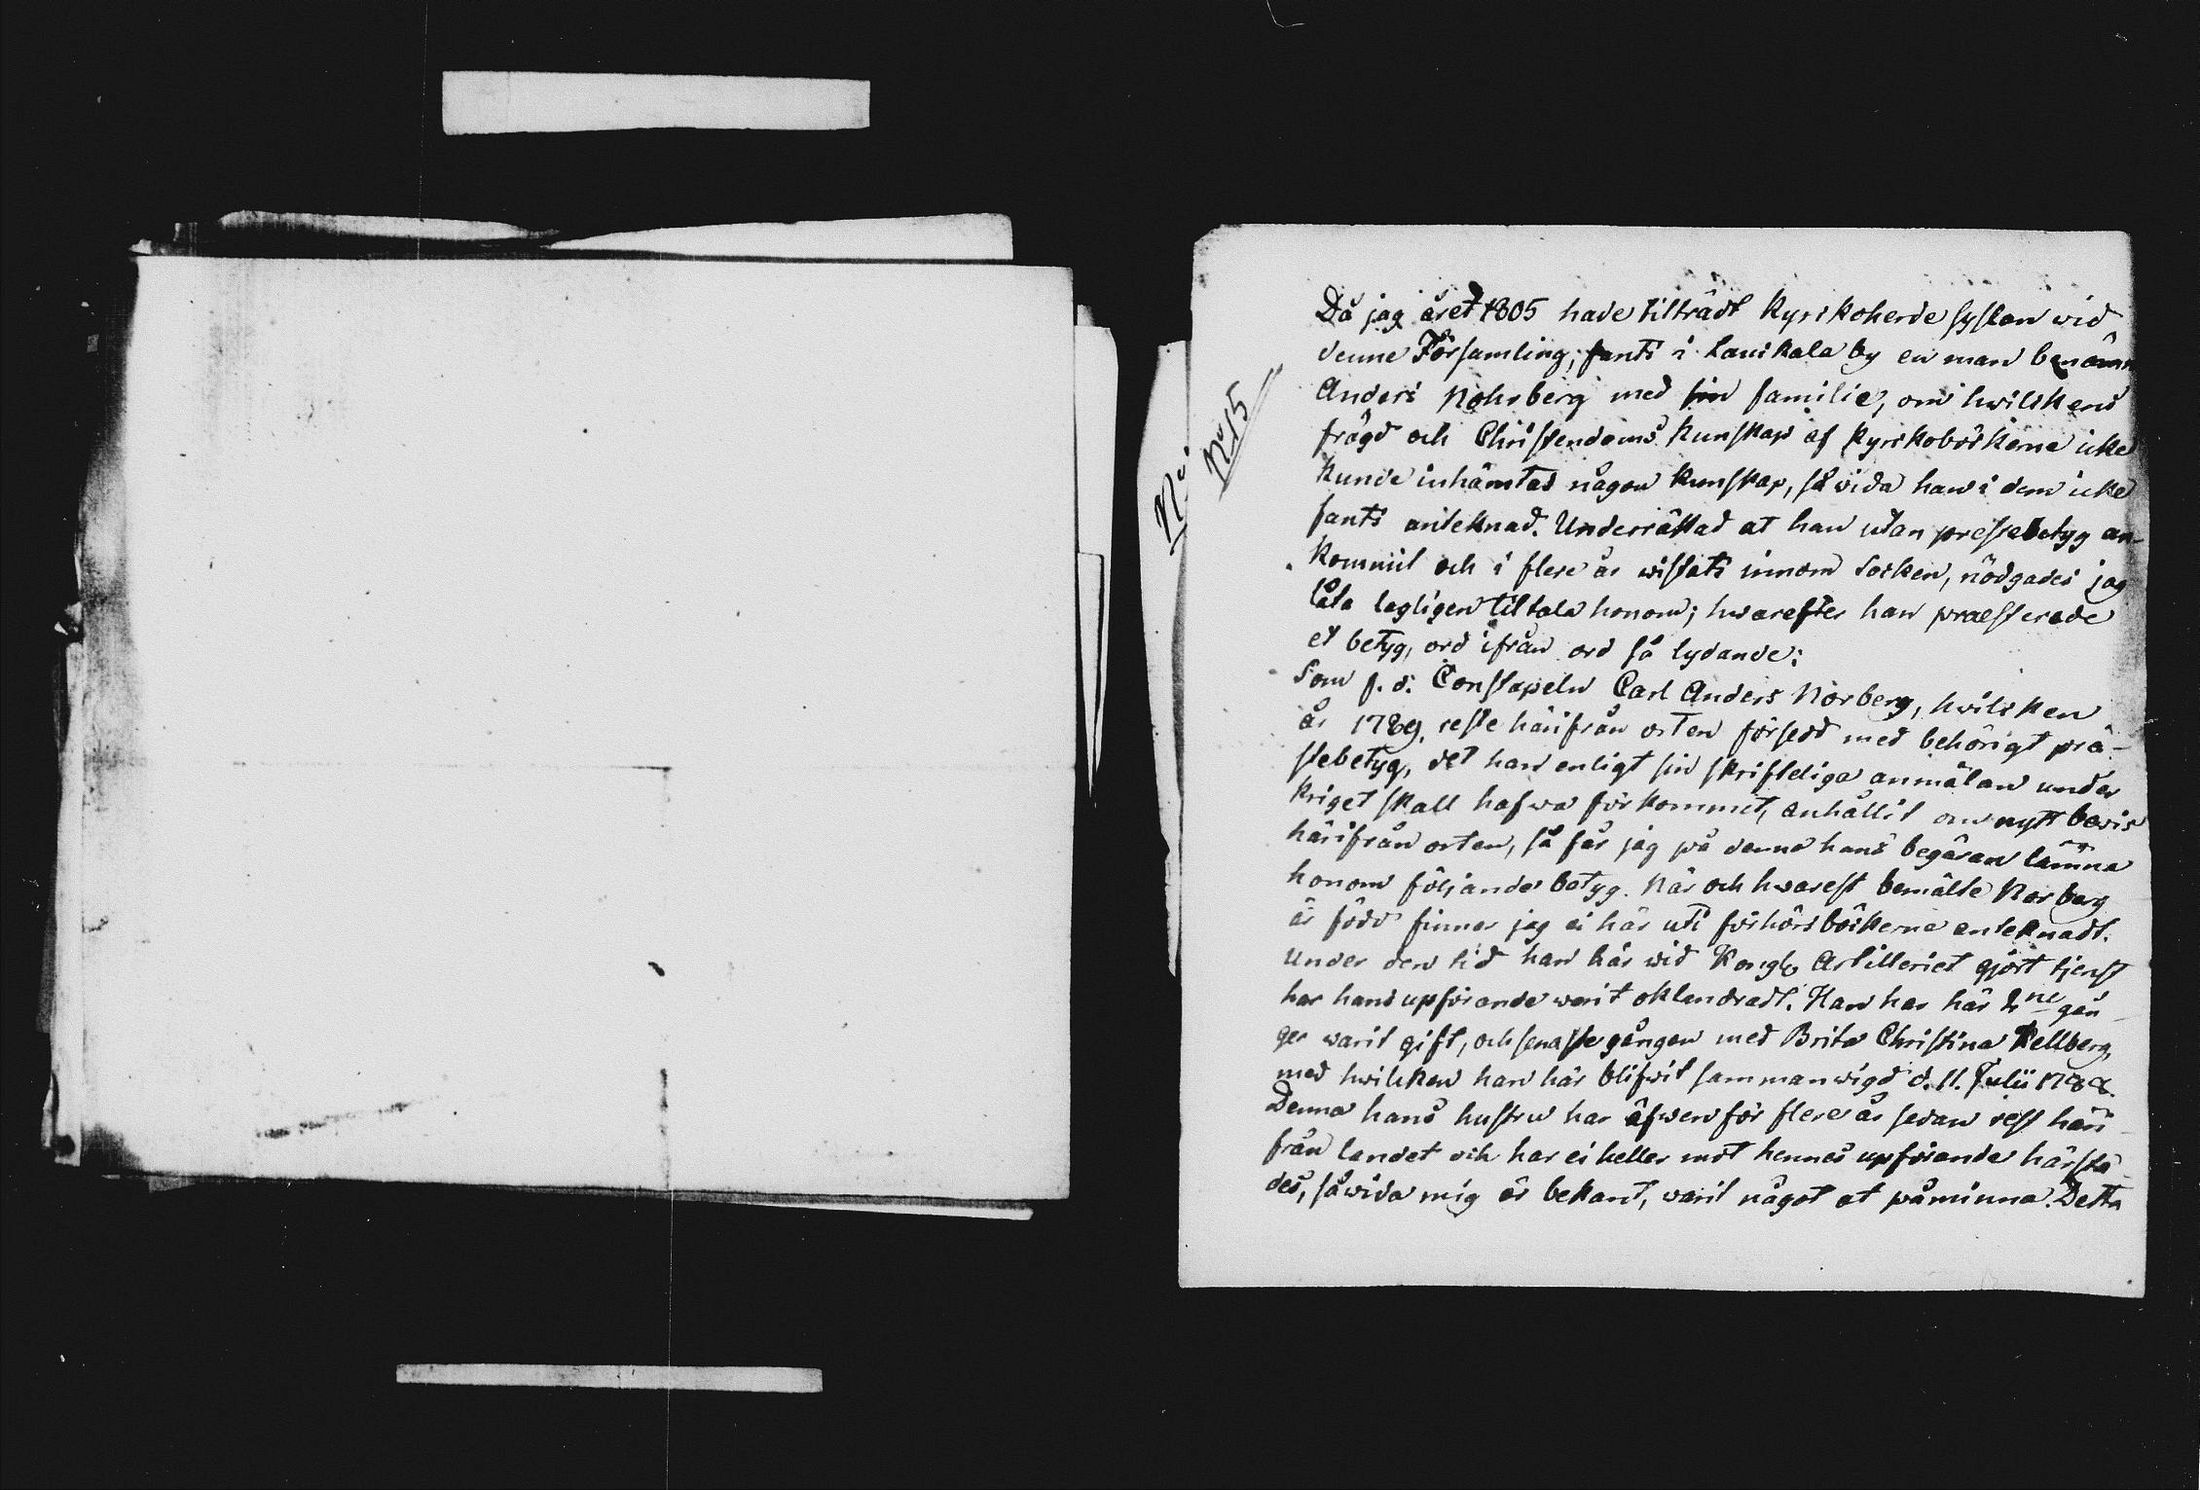 No 15
Då jag året 1805 hade tilträdt Kyrkoherde syslan wid
denne Församling, fants i Lauikala by en man benämn
Anders Nohrberg med sin familie, om hwilkens
frägd och Christendoms kunskap af Kyrkoböckerne icke
kunde inhämtas någon kunskap, så wida han i dem icke
fants anteknad. Underrättad at han utan prestebetyg an-
kommit och i flere år wistats innom Socken, nödgades jag
låta lagligen tiltala honom; hwarefter han praesterade
et betyg, ord ifrån ord så lydande:
Som f. d. Constapeln Carl Anders Norberg, hwilken
år 1789. reste härifrån orten försedd med behörigt prä-
stebetyg, det han enligt sin skrifteliga anmälan under
kriget skall hafwa förkommit, anhållit om nytt bevis
härifrån orten, så får jag på denna hans begäran lämna
honom följande betyg. När och hwarest bemälte Norberg
är född finner jag ei här uti förhörsböckerne anteknadt.
Under den tid han här wid Kongl. Artilleriet gjort tjenst
har hans upförande warit oklandradt. Han har här 2ne gån-
ger warit gift, och senaste gången med Brita Christina Kellberg,
med hwilken han här blifwit sammanwigd d. 11. Julii 1788.
Denna hans hustru har äfwen för flere år sedan rest häri-
från landet och har ei heller mot hennes upförande härstä-
des, såwida mig är bekant, warit något at påminna. Detta